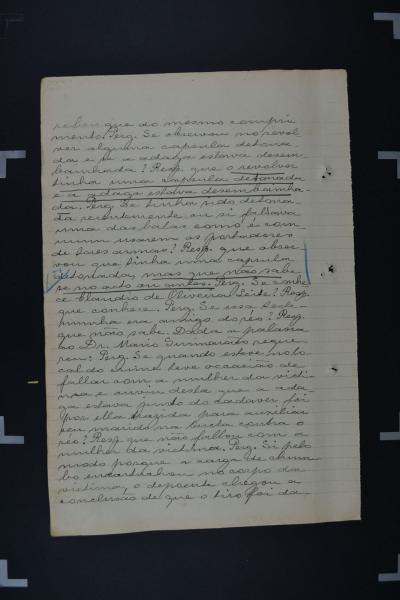 rebeu que do mesmo compri
mento. Perg. Se observou no revol
ver alguma capsula detona
da e se a adaga estava desem
bainhada? Resp. que o revolver
tinha uma capsula detonada
e a adaga estava desembainha
da. Perg. Se tinha sido detona-
da recentemente ou si faltava
uma das balas como é com
mum usarem os portadores
de taes armas? Resp. que obser
vou que tinha uma capsula
detonada, mas que não sabe
se no acto ou antes. Perg. Se conhe
ce Claudio de Oliveira Leite? Resp.
que conhece. Perg. Se essa teste
munha era amigo do réo? Resp.
que não sabe. Dada a palavra
ao Dr. Mario Guimarães reque
reu: Perg. Se quando esteve no lo
cal do crime teve occasião de
fallar com a mulher da victi
ma e ouviu desta que a ada
ga estava junto do cadaver foi
por ella trazida para auxiliar
seu marido na lucta contra o
réo? Resp. que não fallou com a
mulher da victima. Perg. Si pelo
modo porque a carga de chum
bo no corpo da
victima, o depoente chegou a
conclusão de que o tiro foi da-